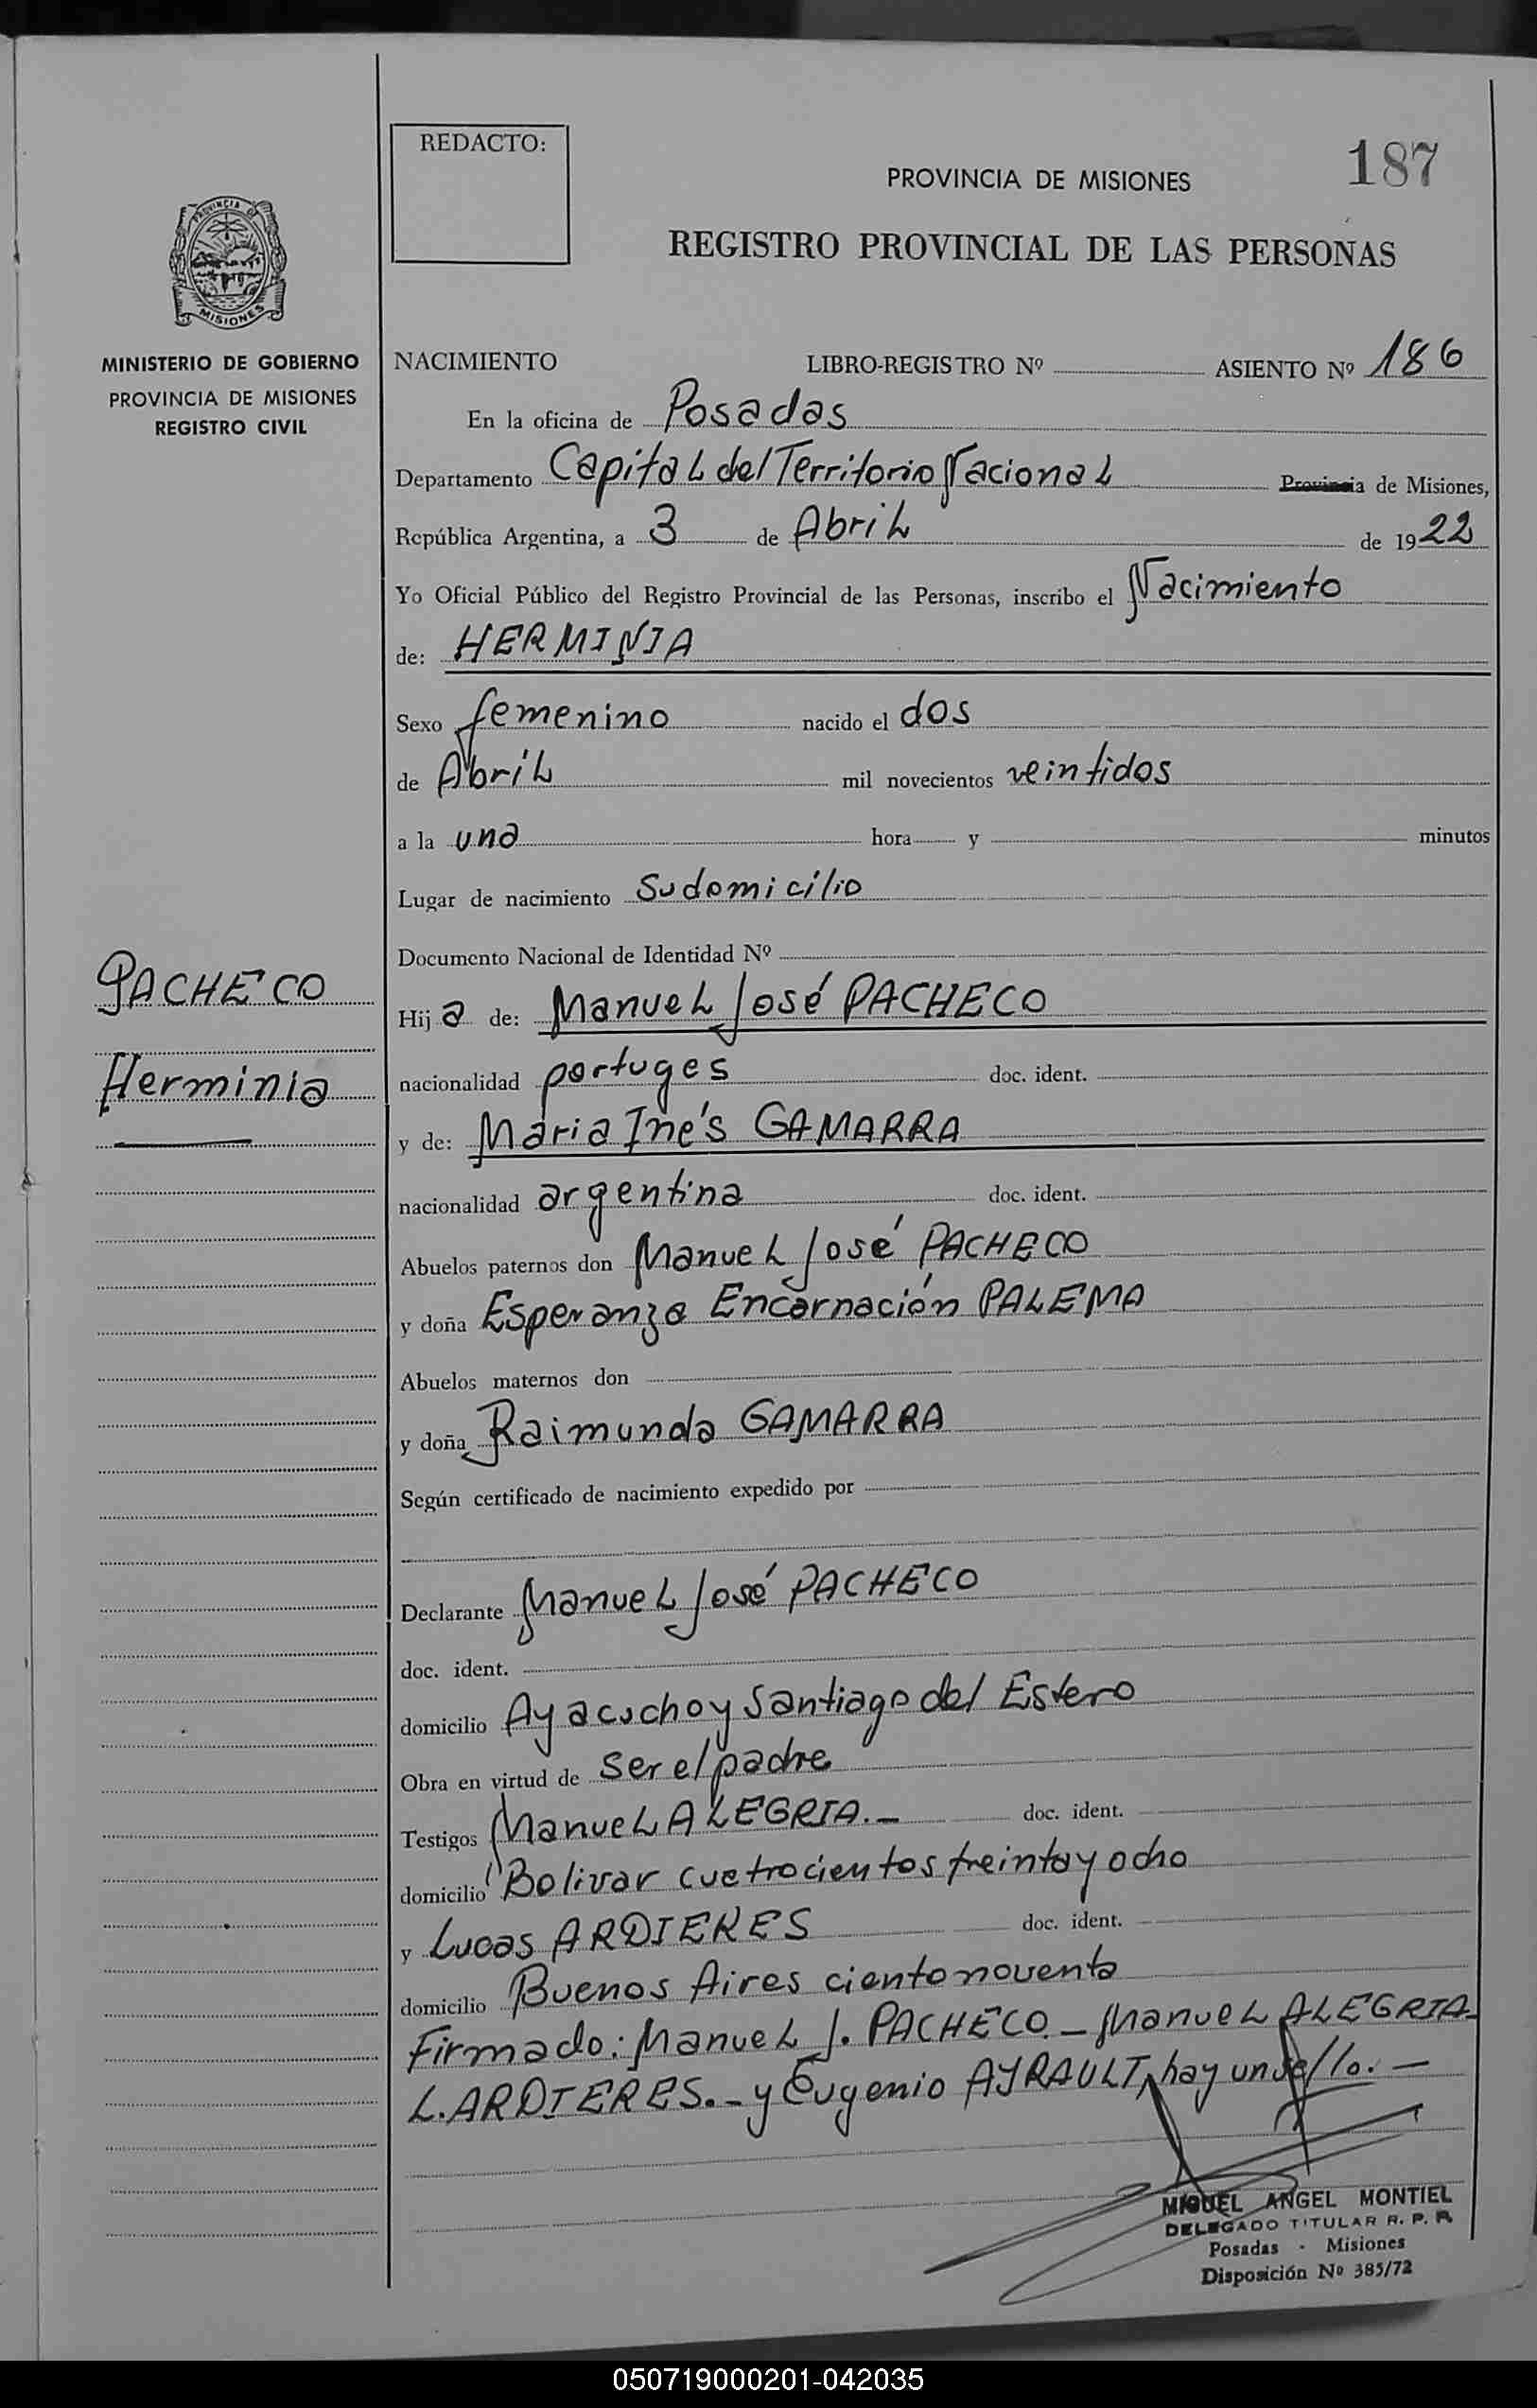 REDACTO:
187
PROVINCIA DE MISIONES
REGISTRO PROVINCIAL DE LAS PERSONAS
PROVINCIA DE
MISIONES
MINISTERIO DE GOBIERNO
PROVINCIA DE MISIONES
REGISTRO CIVIL
NACIMIENTO LIBRO-REGISTRO Nº ASIENTO Nº 186
En la oficina de Posadas
Departamento Capital del Territorio Nacional Provincia de Misiones,
República Argentina, a 3 de Abril de 1922
Yo Oficial Público del Registro Provincial de las Personas, inscribo el Nacimiento
de: HERMINIA
Sexo femenino nacido el dos
de Abril mil novecientos veintidos
a la una hora y minutos
Lugar de nacimiento Su domicilio
Documento Nacional de Identidad Nº
PACHECO
Herminia
Hija de: Manuel José PACHECO
nacionalidad portuges doc. ident.
y de: Maria Inés GAMARRA
nacionalidad argentina doc. ident.
Abuelos paternos don Manuel José PACHECO
y doña Esperanza Encarnación PALEMA
Abuelos maternos don
y doña Raimunda GAMARRA
Según certificado de nacimiento expedido por
Declarante Manuel José PACHECO
doc. ident.
domicilio Ayacucho y Santiago del Estero
Obra en virtud de ser el padre
Testigos Manuel ALEGRIA.- doc. ident.
domicilio Bolivar cuatrocientos treinta y ocho
y Lucas ARDIERES doc. ident.
domicilio Buenos Aires ciento noventa
Firmado: Manuel J. PACHECO.- Manuel ALEGRIA-
L. ARDIERES.- y Eugenio AYRAULT, hay un sello.-
MIGUEL ANGEL MONTIEL
DELEGADO TITULAR R. P. P.
Posadas - Misiones
Disposición Nº 385/72
050719000201-042035